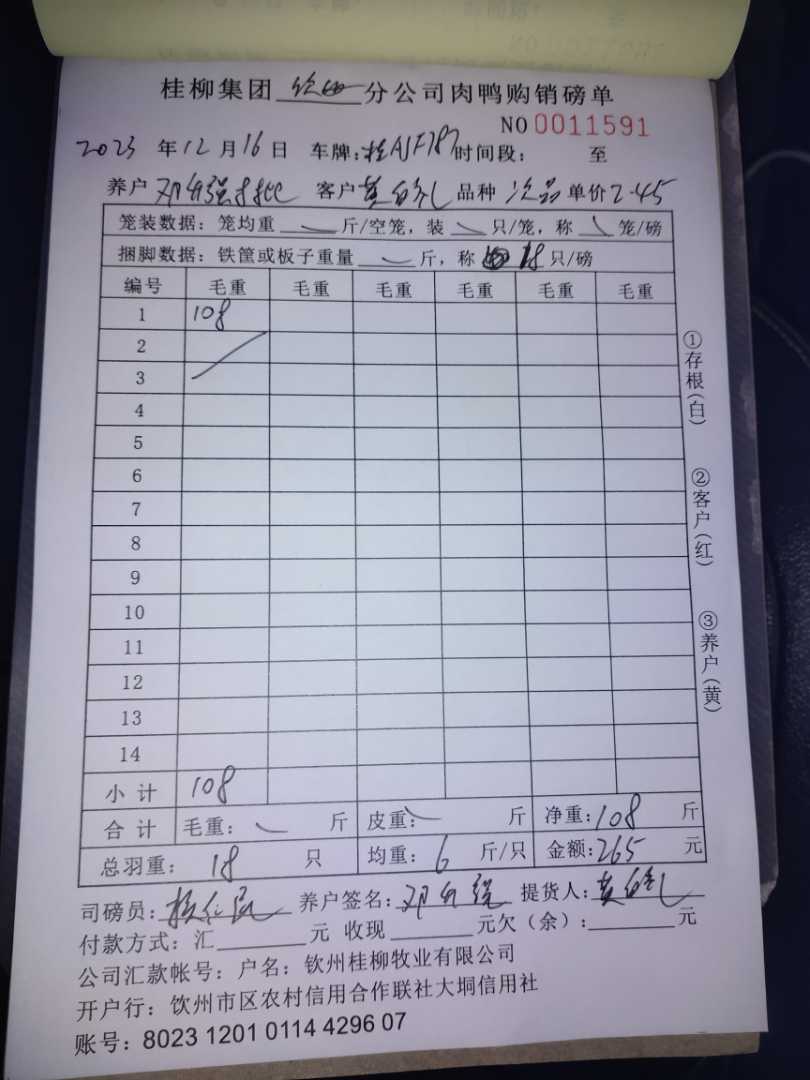 桂柳集团 分公司肉鸭购销磅单
NO 0011591
2023 年 12 月 16 日 车牌:桂AJF787 时间段: 至
养户 邓 强 批 客户 黄 礼 品种 次品 单价 2.45
笼装数据: 笼均重 斤/空笼, 装 只/笼, 称 笼/磅
捆脚数据: 铁筐或板子重量 斤, 称 18 只/磅
编号 毛重 毛重 毛重 毛重 毛重 毛重
1 108
2
3
4
5
6
7
8
9
10
11
12
13
14
小计 108
合计 毛重: 斤 皮重: 斤 净重: 108 斤
总羽重: 18 只 均重: 6 斤/只 金额: 265 元
司磅员: 养户签名: 邓 强 提货人: 黄
付款方式: 汇 元 收现 元欠(余): 元
公司汇款帐号: 户名: 钦州桂柳牧业有限公司
开户行: 钦州市区农村信用合作联社大垌信用社
账号: 8023 1201 0114 4296 07
①存根(白)
②客户(红)
③养户(黄)